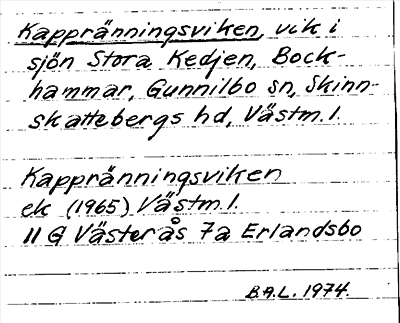 Kappränningsviken, vik i
sjön Stora Kedjen, Bock-
hammar, Gunnilbo sn, Skinn-
skattebergs hd, Västm. l.
Kappränningsviken
ek (1965) Västm. l.
11 G Västerås 7a Erlandsbo
B.A.L. 1974.